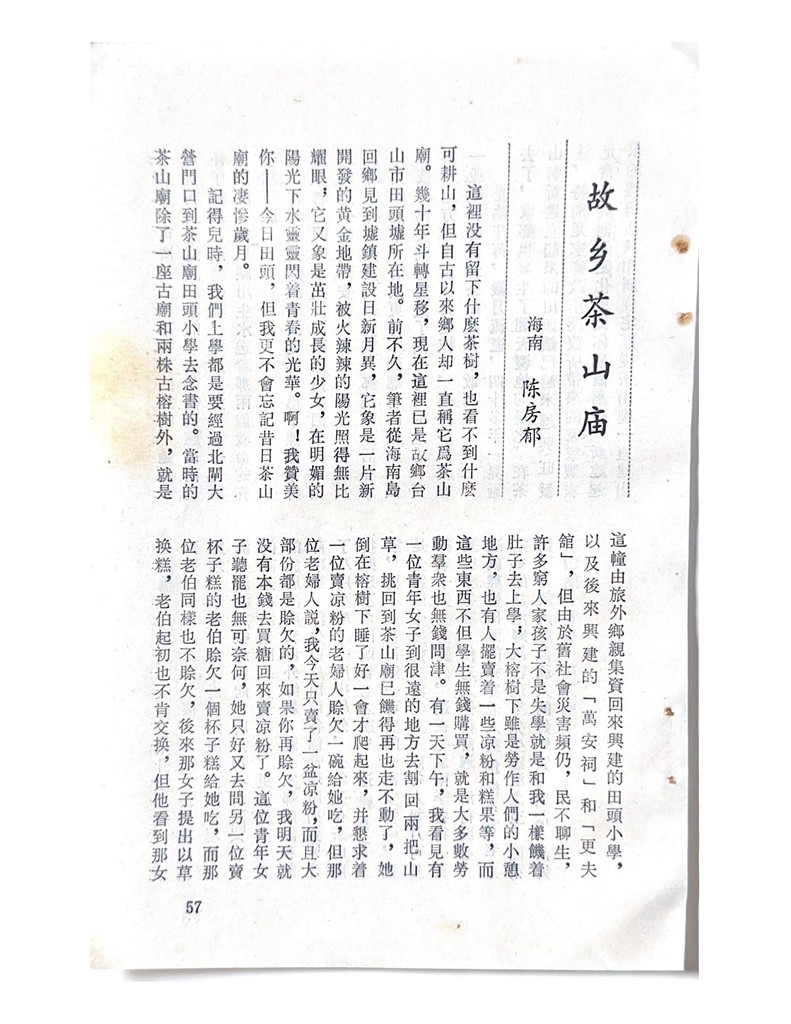 故乡茶山庙
海南 陈房郁
這裡没有留下什麽茶樹，也看不到什麽
可耕山，但自古以來鄉人却一直稱它爲茶山
廟。幾十年斗轉星移，現在這裡已是故鄉台
山市田頭墟所在地。前不久，筆者從海南島
回鄉見到墟鎮建設日新月異，它象是一片新
開發的黄金地帶，被火辣辣的陽光照得無比
耀眼，它又象是茁壯成長的少女，在明媚的
陽光下水靈靈閃着青春的光華。啊！我贊美
你——今日田頭，但我更不會忘記昔日茶山
廟的凄惨歲月。
記得兒時，我們上學都是要經過北閘大
營門口到茶山廟田頭小學去念書的。當時的
茶山廟除了一座古廟和兩株古榕樹外，就是
這幢由旅外鄉親集資回來興建的田頭小學，
以及後來興建的「萬安祠」和「更夫
舘」，但由於舊社會災害頻仍，民不聊生，
許多窮人家孩子不是失學就是和我一樣饑着
肚子去上學，大榕樹下雖是勞作人們的小憩
地方，也有人擺賣着一些凉粉和糕果等，而
這些東西不但學生無錢購買，就是大多數勞
動羣衆也無錢問津。有一天下午，我看見有
一位青年女子到很遠的地方去割回兩把山
草，挑回到茶山廟已饑得再也走不動了，她
倒在榕樹下睡了好一會才爬起來，并懇求着
一位賣凉粉的老婦人賒欠一碗給她吃，但那
位老婦人説，我今天只賣了一盆凉粉，而且大
部份都是賒欠的，如果你再賒欠，我明天就
没有本錢去買糖回來賣凉粉了。這位青年女
子聽罷也無可奈何，她只好又去問另一位賣
杯子糕的老伯賒欠一個杯子糕給她吃，而那
位老伯同樣也不賒欠，後來那女子提出以草
换糕，老伯起初也不肯交换，但他看到那女
57